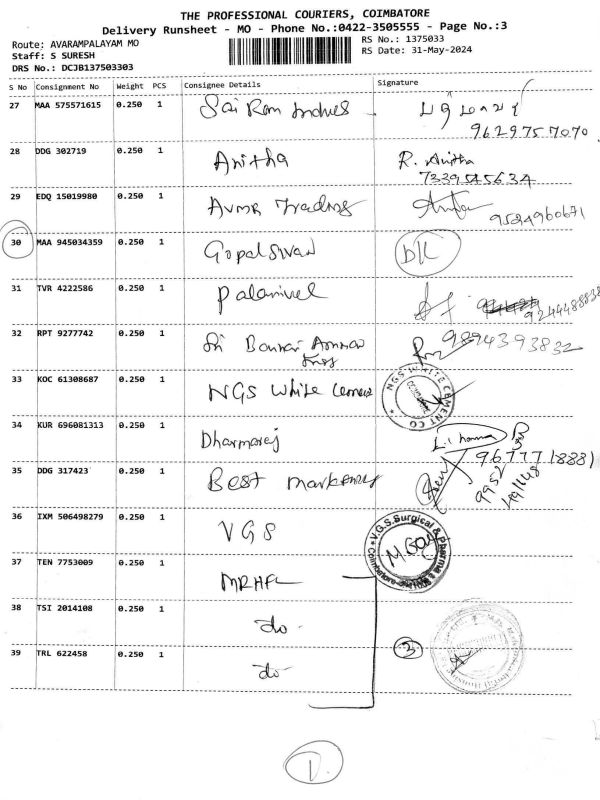 THE PROFESSIONAL COURIERS, COIMBATORE
Delivery Runsheet - MO - Phone No.:0422-3505555 - Page No.:3
Route: AVARAMPALAYAM MO RS No.: 1375033
Staff: S SURESH RS Date: 31-May-2024
DRS No.: DCJB137503303
S No Consignment No Weight PCS Consignee Details Signature
27 MAA 575571615 0.250 1 Sai Ram
9629757070
28 DDG 302719 0.250 1 Anitha R. Anitha
7339545634
29 EDQ 15019980 0.250 1 Trading
9524960671
30 MAA 945034359 0.250 1 Gopalswan
31 TVR 4222586 0.250 1 Palanivel
9244488838
32 RPT 9277742 0.250 1 Sri Bannari Amman 9894393832
33 KOC 61308687 0.250 1 NGS White Cement NGS WHITE CEMENT CO
34 KUR 696081313 0.250 1 Dharmaraj
9677718881
35 DDG 317423 0.250 1 Best Marketing 9952
36 IXM 506498279 0.250 1 VGS V.G.S.Surgical & Pharma Coimbatore
37 TEN 7753009 0.250 1 MRHFL
38 TSI 2014108 0.250 1 do
3
39 TRL 622458 0.250 1 do
1